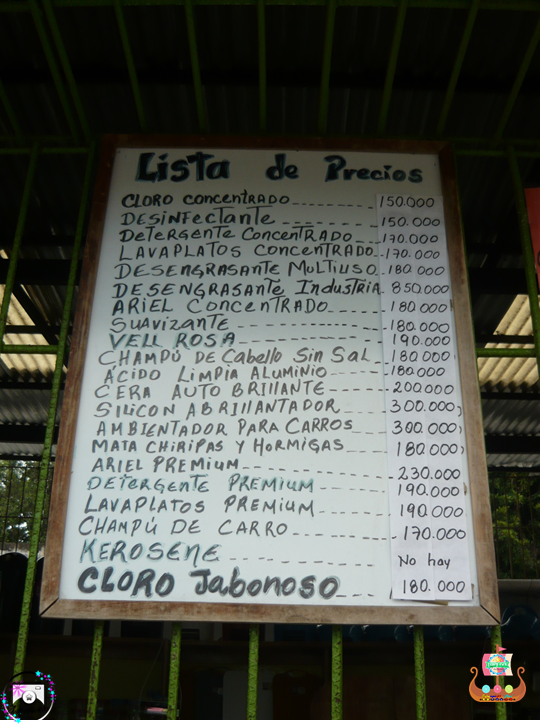 Lista de Precios
CLORO concentrado 150.000
DESinfectante 150.000
Detergente Concentrado 170.000
LAVAPLATOS concentrado 170.000
DESENGRASANTE MULTIUSO 180.000
DESENGRASANTE Industria 850.000
ARIEL CONCENTRADO 180.000
SUAVIZANTE 180.000
VELL ROSA 190.000
CHAMPÚ DE Cabello Sin SAL 180.000
ÁCIDO LIMPIA ALUMINIO 180.000
CERA AUTO BRILLANTE 200.000
SILICON ABRILLANTADOR 300.000
AMBIENTADOR PARA CARROS 300.000
MATA CHIRIPAS Y HORMIGAS 180.000
ARIEL PREMIUM 230.000
DETERGENTE PREMIUM 190.000
LAVAPLATOS PREMIUM 190.000
CHAMPÚ DE CARRO 170.000
KEROSENE No hay
CLORO Jabonoso 180.000